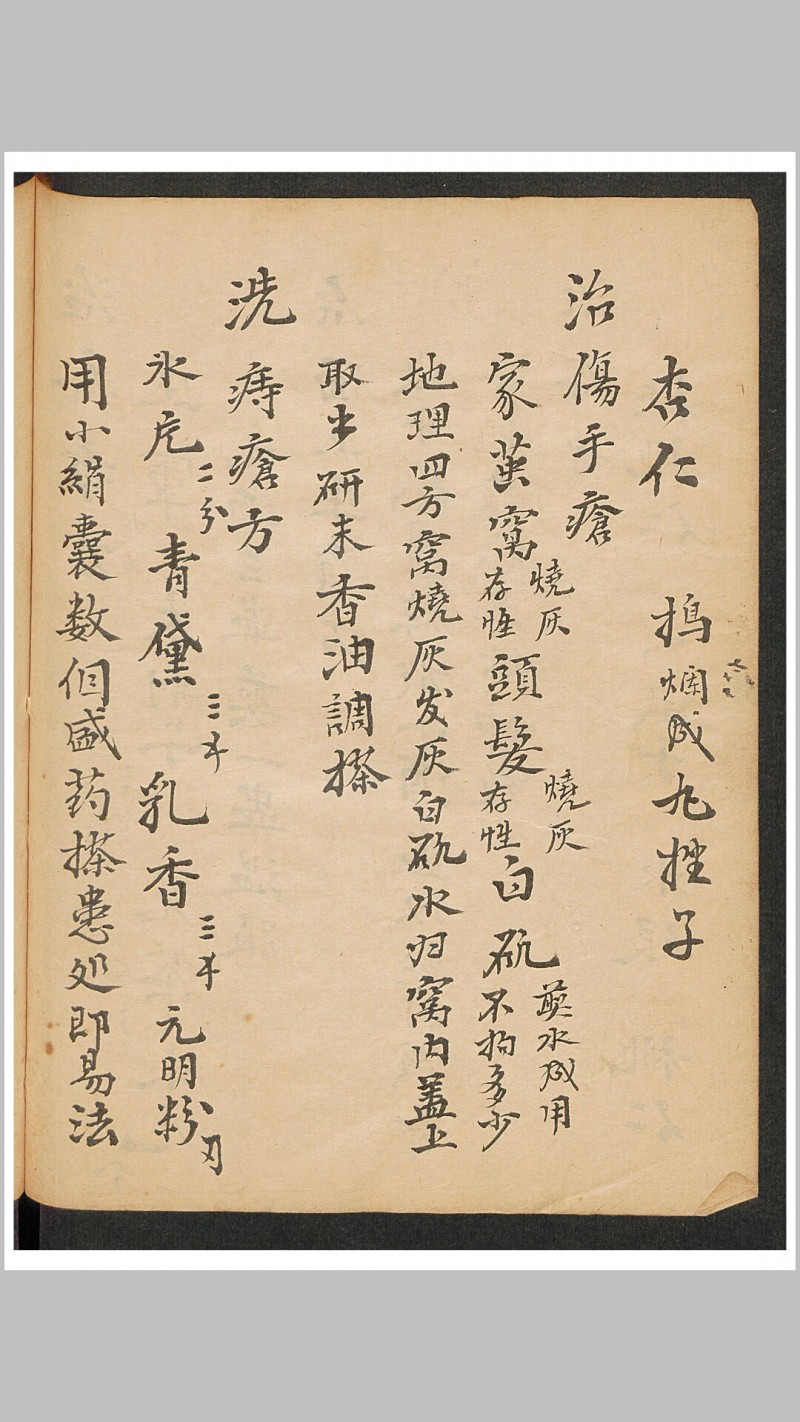 杏仁 搗爛成九挫子
治傷手瘡
家茧窩燒灰存性頭髮燒灰存性白矾蒸水成用不拘多少
地理四方窩燒灰发灰白矾水归窩内蓋上
取出研末香油調搽
洗痔瘡方
氷片二分 青黛三才 乳香三才 元明粉刃
用小絹囊数個盛药搽患处即易法